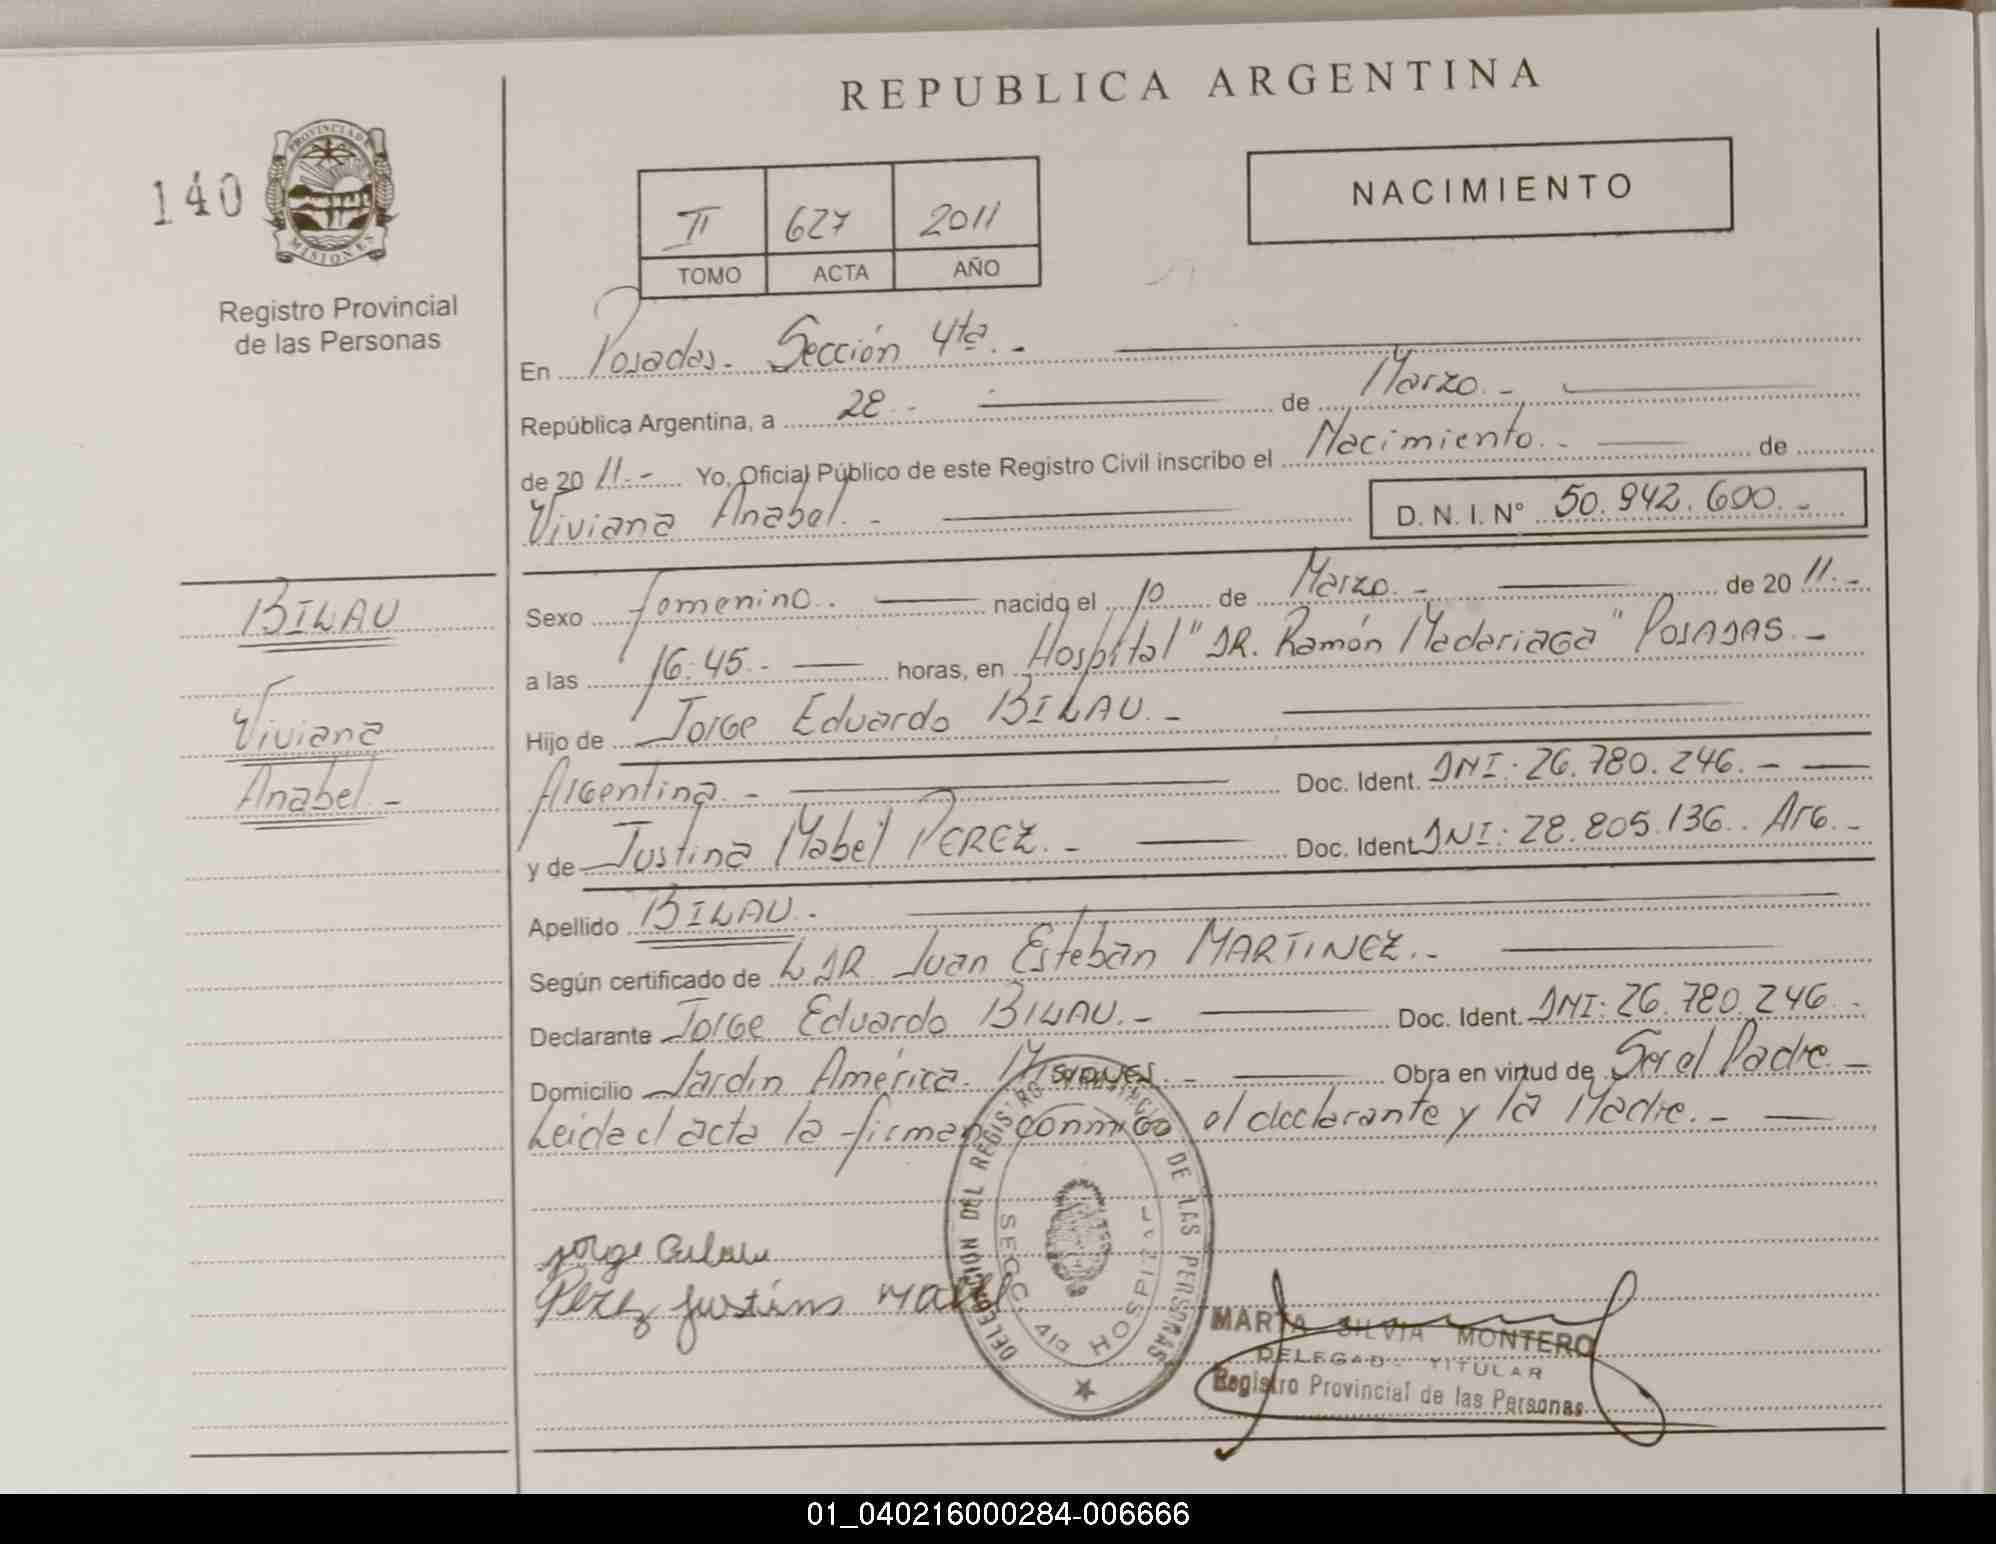 REPUBLICA ARGENTINA
140
PROVINCIA DE
MISIONES
Registro Provincial
de las Personas
II 627 2011
TOMO ACTA AÑO
NACIMIENTO
En Posadas. Sección 4ta. -
República Argentina, a 28. - de Marzo. -
de 20 11. - Yo, Oficial Público de este Registro Civil inscribo el Nacimiento. - de
Viviana Anabel. - D. N. I. Nº 50.942.600. -
BILAU
Viviana
Anabel. -
Sexo femenino. nacido el 10 de Marzo. - de 20 11. -
a las 16:45. - horas, en Hospital "DR. Ramón Madariaga" POSADAS. -
Hijo de Jorge Eduardo BILAU. -
Argentina. - Doc. Ident. DNI: 26.780.246. -
y de Justina Mabel PEREZ. - Doc. Ident. DNI: 28.805.136. Arg. -
Apellido BILAU.
Según certificado de L DR. Juan Esteban MARTINEZ. -
Declarante Jorge Eduardo BILAU. - Doc. Ident. DNI: 26.780.246. -
Domicilio Jardin América. Misiones. - Obra en virtud de Ser el Padre. -
Leida el acta la firman conmigo el declarante y la Madre. -
DELEGACION DEL REGISTRO PROVINCIAL DE LAS PERSONAS
SECC. 4ta HOSPITAL
Jorge
Perez Justina Mabel
MARTA SILVIA MONTERO
DELEGADA TITULAR
Registro Provincial de las Personas
01_040216000284-006666